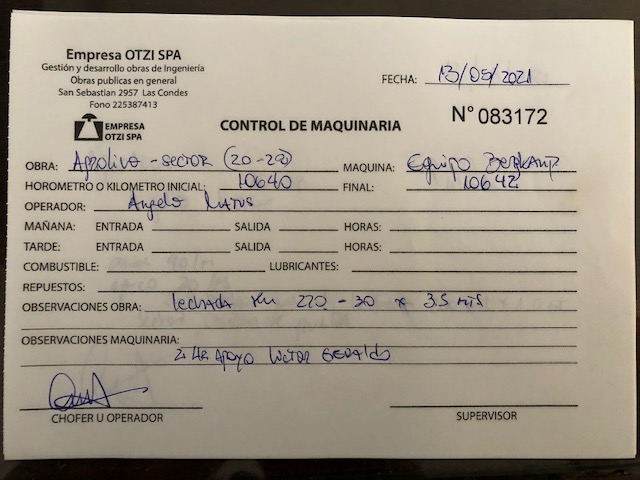 Empresa OTZI SPA
Gestión y desarrollo obras de Ingeniería
Obras publicas en general
San Sebastian 2957 Las Condes
Fono 225387413
EMPRESA
OTZI SPA
FECHA: 13/05/2021
CONTROL DE MAQUINARIA
N° 083172
OBRA: - Sector (20-29) MAQUINA: Equipo
HOROMETRO O KILOMETRO INICIAL: 10640 FINAL: 10642
OPERADOR: Angelo
MAÑANA: ENTRADA SALIDA HORAS:
TARDE: ENTRADA SALIDA HORAS:
COMBUSTIBLE: LUBRICANTES:
REPUESTOS:
OBSERVACIONES OBRA: lechada Km 220 - 30 x 3.5 mts
OBSERVACIONES MAQUINARIA:
apoyo Victor
CHOFER U OPERADOR
SUPERVISOR